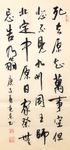 死去原知萬事空但
悲不見九州同王師
北定中原日家祭無
忘告乃翁